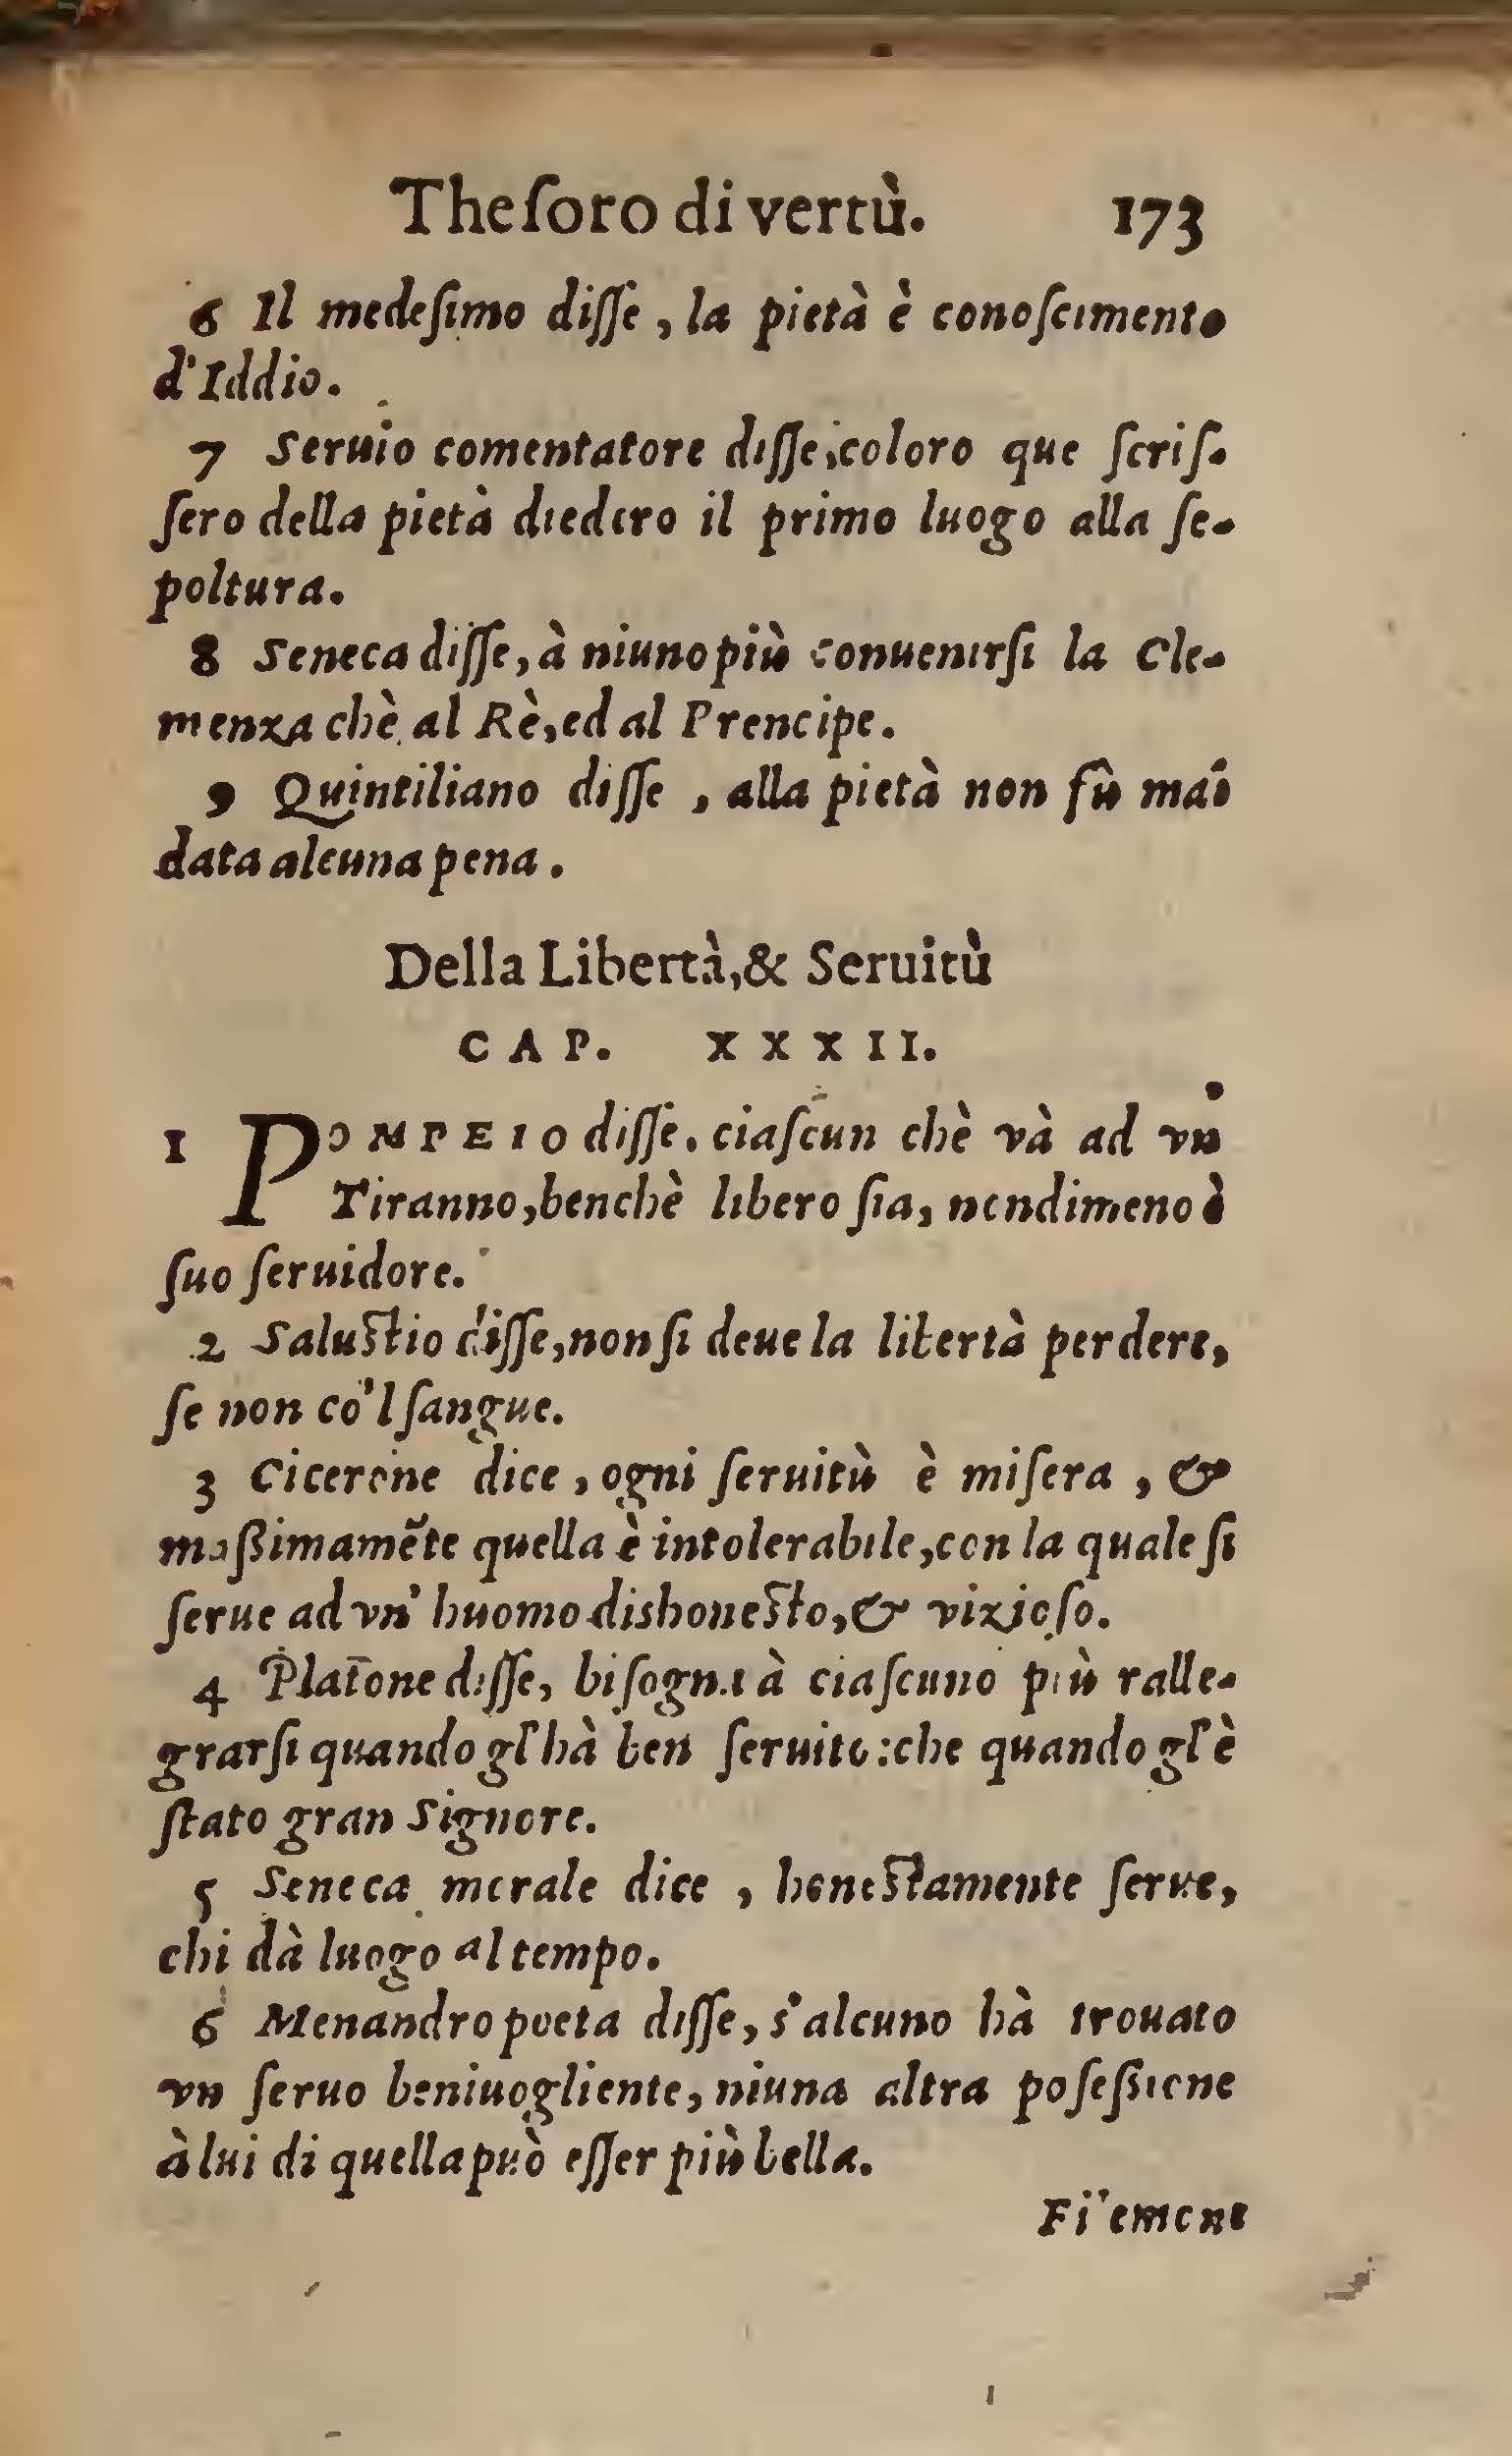 Theſoro di vertù. 173
6 Il medeſimo diſſe, la pietà è conoſcimento
d'Iddio.
7 Seruio comentatore diſſe, coloro que ſcriſ-
ſero della pietà diedero il primo luogo alla ſe-
poltura.
8 Seneca diſſe, à niuno più conuenirſi la Cle-
menza chè al Rè, ed al Prencipe.
9 Quintiliano diſſe, alla pietà non fù mai
data alcuna pena.
Della Libertà, & Seruitù
CAP. XXXII.
1 POMPEIO diſſe. ciaſcun chè và ad vn
Tiranno, benchè libero ſia, nondimeno è
ſuo ſeruidore.
2 Saluſtio diſſe, non ſi deue la libertà perdere,
ſe non co'l ſangue.
3 Cicerone dice, ogni ſeruitù è miſera, &
maßimamẽte quella è intolerabile, con la quale ſi
ſerue ad vn' huomo dishoneſto, & vizioſo.
4 Platone diſſe, biſogna à ciaſcuno più ralle-
grarſi quando gl'hà ben ſeruito: che quando gl'è
ſtato gran Signore.
5 Seneca morale dice, honeſtamente ſerue,
chi dà luogo al tempo.
6 Menandro poeta diſſe, s'alcuno hà trouato
vn ſeruo beniuogliente, niuna altra poſeßione
à lui di quella può eſſer più bella.
Filemone